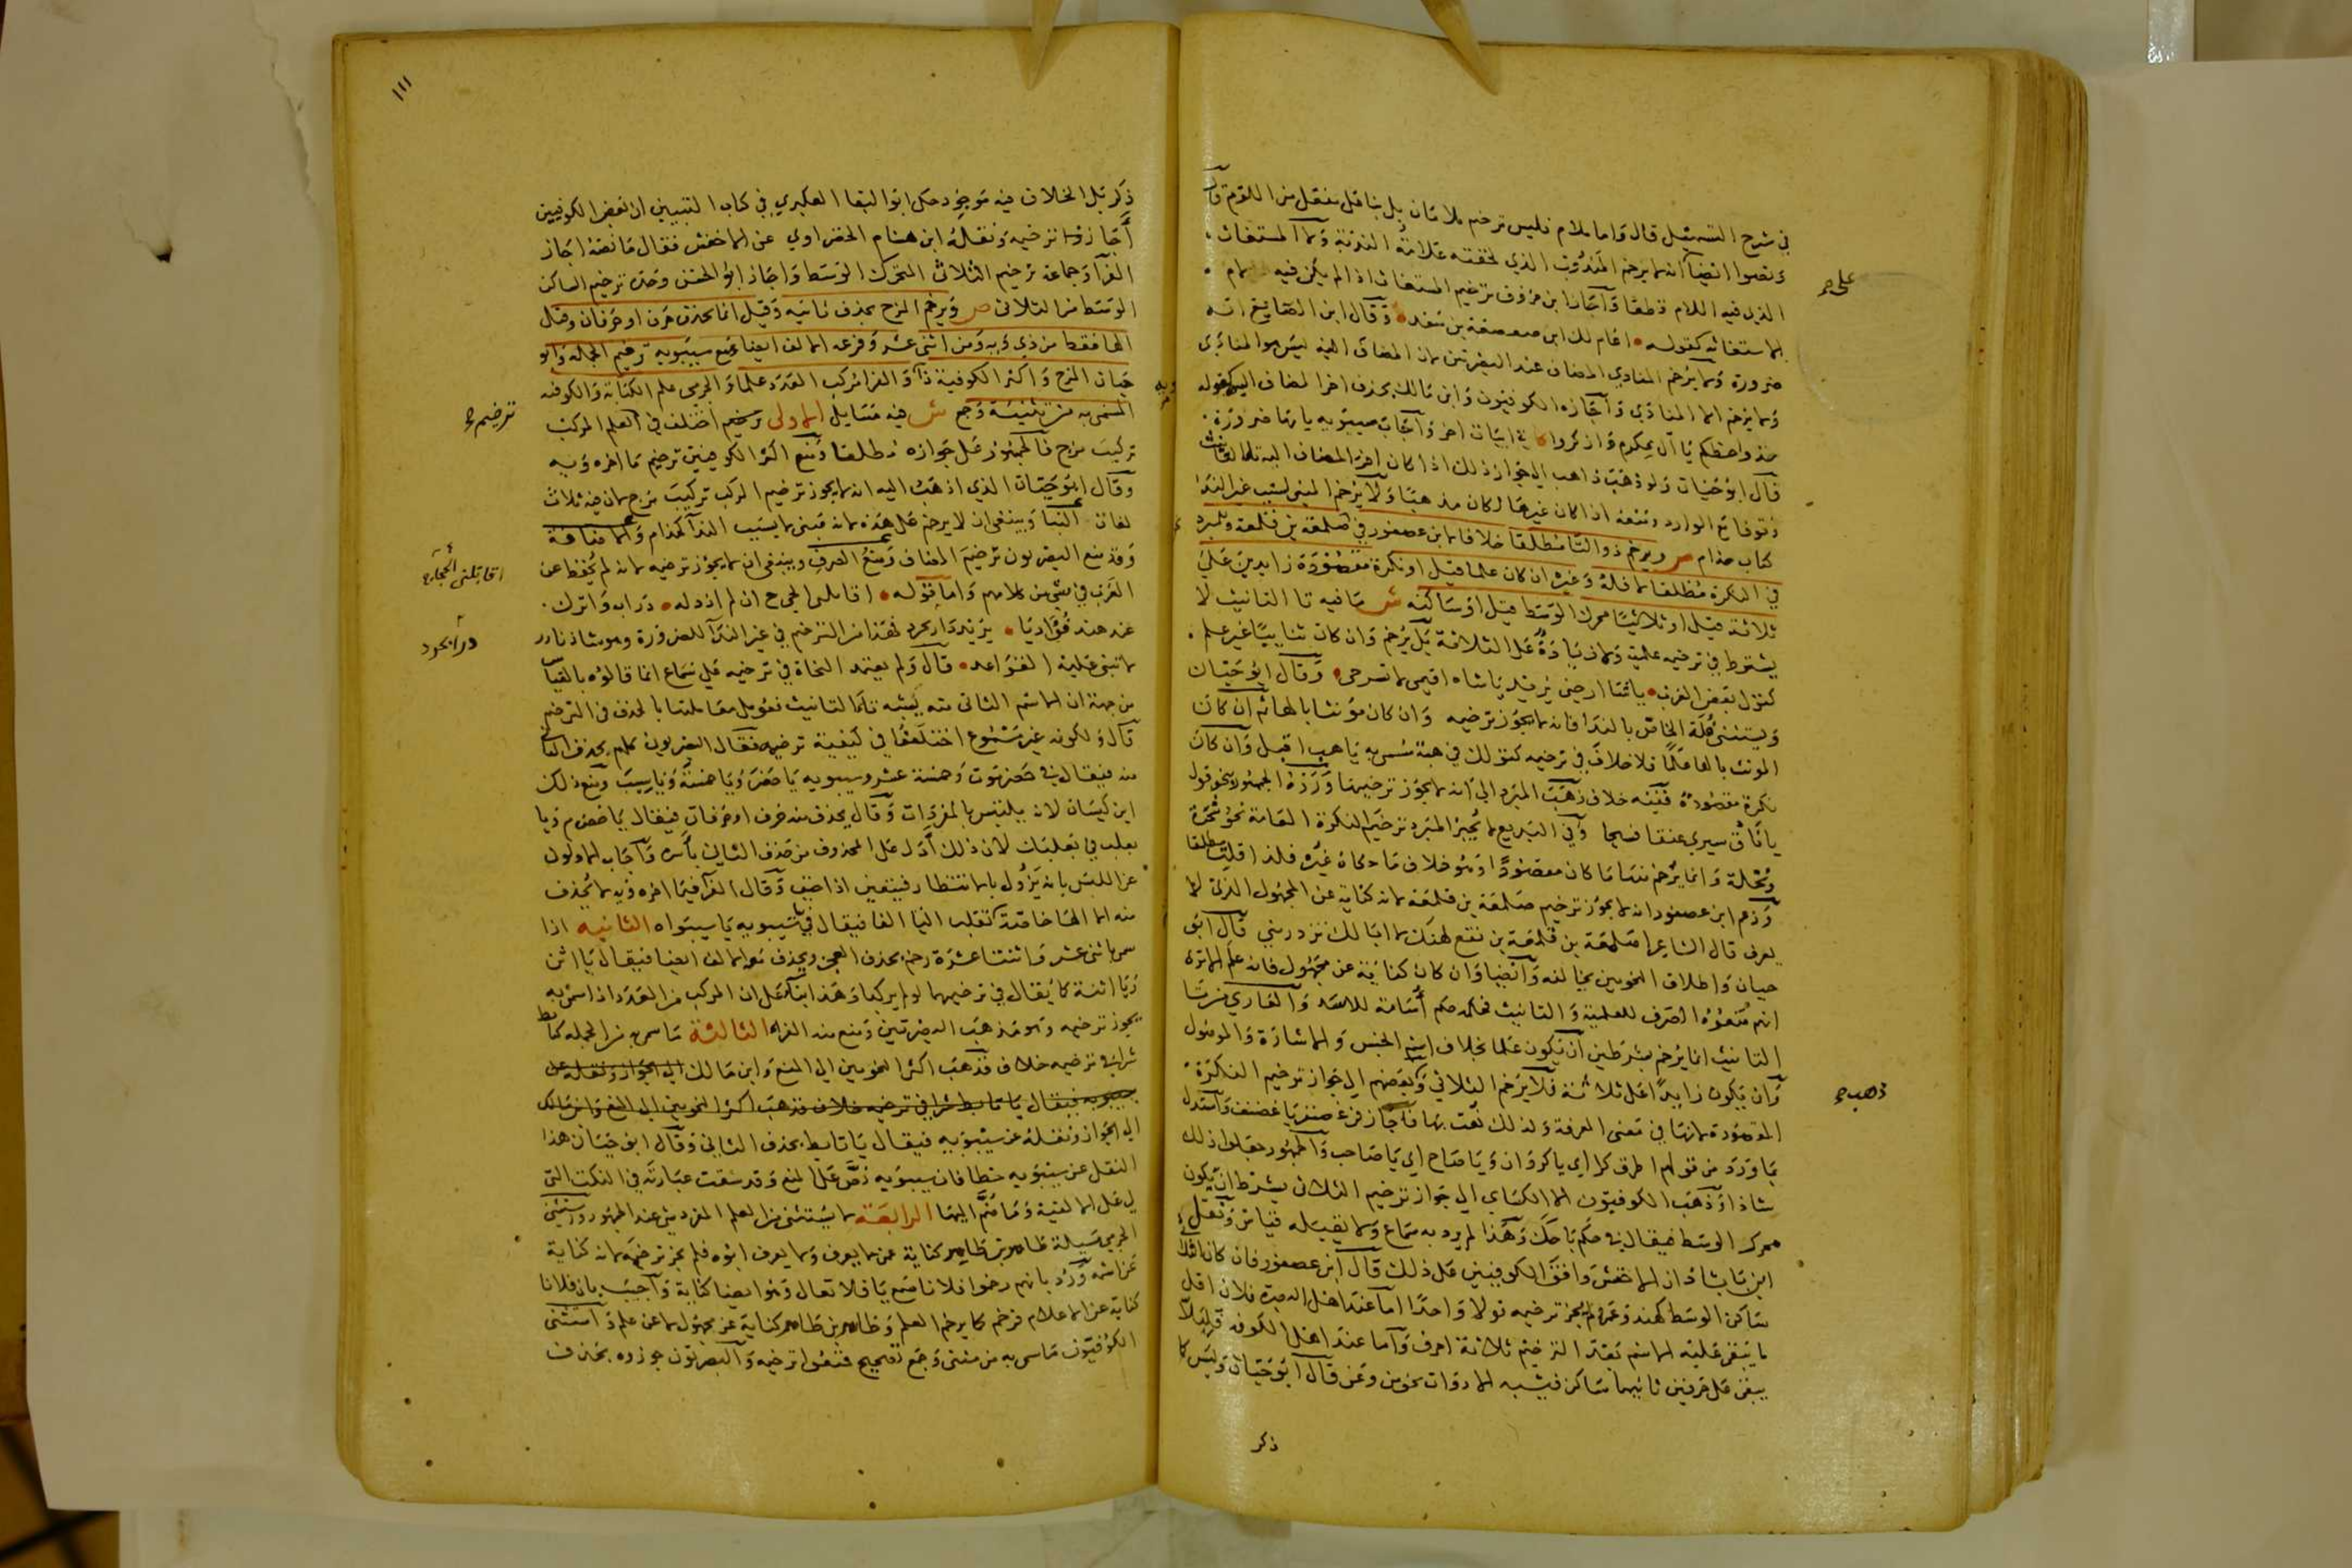 في شرح التسهيل قال واما ملام فليس ترخيم ملامان بل بنا على مفعل من اللوم قال
ونصوا ايضا انه لا يرخم المندوب الذي لحقته علامة الندبة ولا المستغاث
الذي فيه اللام قطعا واجاز ابن خروف ترخيم المستغاث اذا لم يكن فيه لام
الاستغاثة كقوله اعام لك ابن صعصعة بن سعد وقال ابن الصايغ انه
ضرورة ولا يرخم المنادي المضاف عند البصريين لان المضاف اليه ليس هو المنادى
ولا يرخم الا المنادى واجازه الكوفيون وابن مالك بحذف اخر المضاف اليه كقوله
خذوا حظكم يا آل عكرم واذكروا في ابيات اخر واجاب سيبويه بانها ضرورة
قال ابو حيان ولو ذهب ذاهب الى جواز ذلك اذا كان اخر المضاف اليه تا التانيث
وقوفا مع الوارد ومنعه اذا كان غيرها لكان مذهبا ولا يرخم المبني لسبب غير الندا
كباب حذام ص ويرخم ذو التا مطلقا خلافا لابن عصفور في صلمعة بن قلمعة وللمبرد
في النكرة مطلقا لا فلة وغيره ان كان علما قيل او نكرة مقصودة زايدين على
ثلاثة قيل او ثلاثيا محرك الوسط قيل او ساكنه ش ما فيه تا التانيث لا
يشترط في ترخيمه علمية ولا زيادة على الثلاثة بل يرخم وان كان ثنائيا غير علم
كقول بعض العرب يا ثبا ارجني يريد يا شاة اقيمي لا تسرحي وقال ابو حيان
ويستثنى فلة الخاص بالندا فانه لا يجوز ترخيمه وان كان مؤنثا بالهاء ثم ان كان
المونث بالها علما فلا خلاف في ترخيمه كقولك في هبة مسمى به يا هب اقبل وان كان
نكرة مقصودة ففيه خلاف ذهب المبرد الى انه لا يجوز ترخيمها ورده الجمهور بنحو قوله
يا ناق سيري عنقا فسيحا وفي البديع لا يجيز المبرد ترخيم النكرة العامة نحو شجرة
ونخلة وانما يرخم منها ما كان مقصودا وهو خلاف ما حكاه غيره فلذا قلت مطلقا
وزعم ابن عصفور انه لا يجوز ترخيم صلمعة بن قلمعة لانه كناية عن المجهول الذي لا
يعرف قال الشاعر اصلمعة بن قلمعة بن فقع لهنك لا ابالك تزدريني قال ابو
حيان واطلاق النحويين يخالفه وايضا وان كان كناية عن مجهول فانه علم الا ترى
انهم منعوه الصرف للعلمية والتانيث فحكمه حكم اسامة للاسد والعاري من تا
التانيث انما يرخم بشرطين ان يكون علما بخلاف اسم الجنس والاشارة والموصول
وان يكون زايدا على ثلاثة فلا يرخم الثلاثي وبعضهم الى جواز ترخيم النكرة
المقصودة لانها في معنى المعرفة ولذلك نعت بها فاجاز في غضنفر يا غضنف واستدل
بما ورد من قولهم اطرق كرا اي يا كروان ويا صاح اي يا صاحب والجمهور جعلوا ذلك
شاذا وذهب الكوفيون الا الكساي الى جواز ترخيم الثلاثي بشرط ان يكون
محرك الوسط فيقال في حكم يا حك وهذا لم يرد به سماع ولا يقبله قياس ونقل
ابن بابشاذ ان الاخفش وافق الكوفيين على ذلك قال ابن عصفور فان كان الثلاثي
ساكن الوسط كهند وعمرو لم يجز ترخيمه قولا واحدا اما عند اهل البصرة فلان اقل
ما يبقى عليه الاسم بعد الترخيم ثلاثة احرف واما عند اهل الكوفة فليلا
يبقى على حرفين ثانيهما ساكن فيشبه الادوات نحو من وعن قال ابو حيان وليس كما
ذكر
على صح
ذهب صح
١١١
ذكر بل الخلاف فيه موجود حكى ابو البقا العكبري في كتاب التبيين ان بعض الكوفيين
اجازوا ترخيمه ونقله ابن هشام الخضراوي عن الاخفش فقال ما نصه اجاز
الفرا وجماعة ترخيم الثلاثي المتحرك الوسط واجاز ابو الحسن وحده ترخيم الساكن
الوسط من الثلاثي ص ويرخم المزج بحذف ثانيه وقيل انما يحذف حرف او حرفان وقيل
الها فقط من ذي ويه ومن اثنى عشر وفرعه الالف ايضا ومنع سيبويه ترخيم الجملة وابو
حيان المزج واكثر الكوفية ذا والفرا مركب العدد علما والجرمي علم الكناية والكوفية
المسمى به من تثنية وجمع ش فيه مسايل الاولى ترخيم اختلف في العلم المركب
تركيب مزج فالجمهور على جوازه مطلقا ومنع اكثر الكوفيين ترخيم ما اخره ويه
وقال ابو حيان الذي اذهب اليه انه لا يجوز ترخيم المركب تركيب مزج لان فيه ثلاث
لغات البنا وينبغي ان لا يرخم على هذه لانه مبني لا بسبب الندا كحذام والاضافة
وقد منع البصريون ترخيم المضاف ومنع الصرف وينبغي ان لا يجوز ترخيمه لانه لم يحفظ عن
العرب في شي من كلامهم واما قوله اقاتلي الحجاج ان لم ازر له دراب واترك
عند هند فؤاديا يريد دارابجرد فهذا من الترخيم في غير الندا للضرورة وهو شاذ نادر
لا تبنى عليه القواعد قال ولم يعتمد النحاة في ترخيمه على سماع انما قالوه بالقياس
من جهة ان الاسم الثاني منه يشبه تا التانيث فعومل معاملتها بالحذف في الترخيم
قال ولكونه غير مسموع اختلفوا في كيفية ترخيمه فقال البصريون كلهم بحذف الثاني
منه فيقال في حضرموت وخمسة عشر وسيبويه يا حضر ويا خمسة ويا سيب ومنع ذلك
ابن كيسان لانه يلتبس بالمفردات وقال يحذف منه حرف او حرفان فيقال يا حضرم ويا
بعلب في بعلبك لان ذلك ادل على المحذوف من حذف الثاني باسره واجاب الاولون
عن اللبس بانه يزول بالانتظار فيتعين اذا خيف وقال الفرا فيما اخره ويه لا يحذف
منه الا الها خاصة ثم تقلب اليا الفا فيقال في سيبويه يا سيبواه الثانيه اذا
سمي باثنى عشر واثنتا عشرة رخم بحذف العجز ويحذف معه الالف ايضا فيقال يا اثن
ويا اثنة كما يقال في ترخيمهما لو لم يركبا وهذا بنا على ان المركب من العدد اذا سمي به
يجوز ترخيمه وهو مذهب البصريين ومنع منه الفرا الثالثة ما سمي به من الجملة كتابط
شرا في ترخيمه خلاف فذهب اكثر النحويين الى المنع وابن مالك الى الجواز ونقله عن
سيبويه فيقال يا تابط شرا في ترخيمه خلاف فذهب اكثر النحويين الى المنع وابن مالك
الى الجواز ونقله عن سيبويه فيقال يا تابط بحذف الثاني وقال ابو حيان هذا
النقل عن سيبويه خطا فان سيبويه نص على المنع وقد سقت عبارته في النكت التي
لي على الالفية وما ضم اليها الرابعة لا يستثنى من العلم المفرد شي عند الجمهور واستثنى
الجرمي مسيلة طامر بن طامر كناية عن لا يعرف ولا يعرف ابوه فلم يجز ترخيمه لانه كناية
عن اسم ورد بانهم رخموا فلانا سمع يا فلا تعال وهو ايضا كناية واجيب بان فلانا
كناية عن الاعلام فرخم كما يرخم العلم وطامر بن طامر كناية عن مجهول لا عن علم واستثنى
الكوفيون ما سمي به من مثنى وجمع تصحيح فمنعوا ترخيمه والبصريون جوزوه بحذف
ترخيم صح
اقاتلي الحجاج
درابجرد